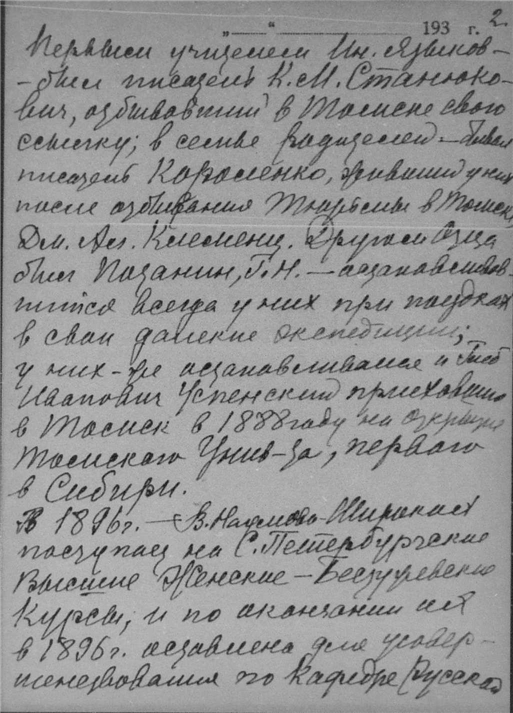 „ — “ 193 г. 2.
Первым учителем Ин. Языков-
- был писатель К. М. Станюко-
вич, отбывавший в Томске свою
ссылку; в семье родителей — бывал
писатель Короленко, живший у них
после отбывания тюрьмы в Томске,
Дм. Ал. Клеменц. Другом Отца
был Потанин, Г. Н. — останавливав-
шийся всегда у них при поездках
в свои далекие экспедиции;
у них-же останавливался и Глеб
Иванович Успенский приехавший
в Томск в 1888 году на открытие
Томского Унив-та, первого
в Сибири.
В 1896 г. — В. Наумова-Широких
поступает на С. Петербургские
Высшие Женские — Бестужевские
Курсы, и по окончании их
в 1896 г. оставлена для усовер-
шенствования по кафедре Русской